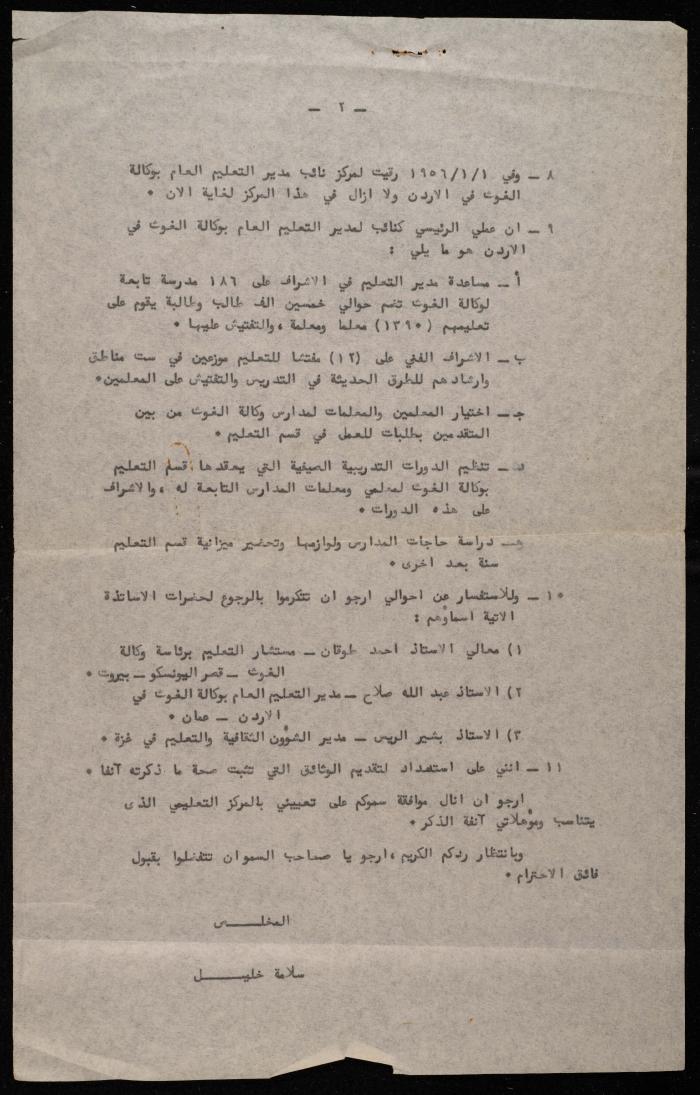 — ٢ —
٨ — وفي ١٩٥٦/١/١ رقيت لمركز نائب مدير التعليم العام بوكالة
الغوث في الاردن ولا ازال في هذا المركز لغاية الان •
٩ — ان عملي الرئيسي كنائب لمدير التعليم العام بوكالة الغوث في
الاردن هو ما يلي :
أ — مساعدة مدير التعليم في الاشراف على ١٨٦ مدرسة تابعة
لوكالة الغوث تضم حوالي خمسين الف طالب وطالبة يقوم على
تعليمهم (١٣٩٠) معلما ومعلمة ، والتفتيش عليها •
ب — الاشراف الفني على (١٢) مفتشا للتعليم موزعين في ست مناطق
وارشادهم للطرق الحديثة في التدريس والتفتيش على المعلمين •
ج — اختيار المعلمين والمعلمات لمدارس وكالة الغوث من بين
المتقدمين بطلبات للعمل في قسم التعليم •
د — تنظيم الدورات التدريبية الصيفية التي يعقدها قسم التعليم
بوكالة الغوث لمعلمي ومعلمات المدارس التابعة له ، والاشراف
على هذه الدورات •
هـ — دراسة حاجات المدارس ولوازمها وتحضير ميزانية قسم التعليم
سنة بعد اخرى •
١٠ — وللاستفسار عن احوالي ارجو ان تتكرموا بالرجوع لحضرات الاساتذة
الاتية اسماؤهم :
١) معالي الاستاذ احمد طوقان — مستشار التعليم برئاسة وكالة
الغوث — قصر اليونسكو — بيروت •
٢) الاستاذ عبد الله صلاح — مدير التعليم العام بوكالة الغوث في
الاردن — عمان •
٣) الاستاذ بشير الريس — مدير الشؤون الثقافية والتعليم في غزة •
١١ — انني على استعداد لتقديم الوثائق التي تثبت صحة ما ذكرته آنفا •
ارجو ان انال موافقة سموكم على تعييني بالمركز التعليمي الذى
يتناسب ومؤهلاتي آنفة الذكر •
وبانتظار ردكم الكريم ، ارجو يا صاحب السمو ان تتفضلوا بقبول
فائق الاحترام •
المخلـــــص
سلامة خليـــــل